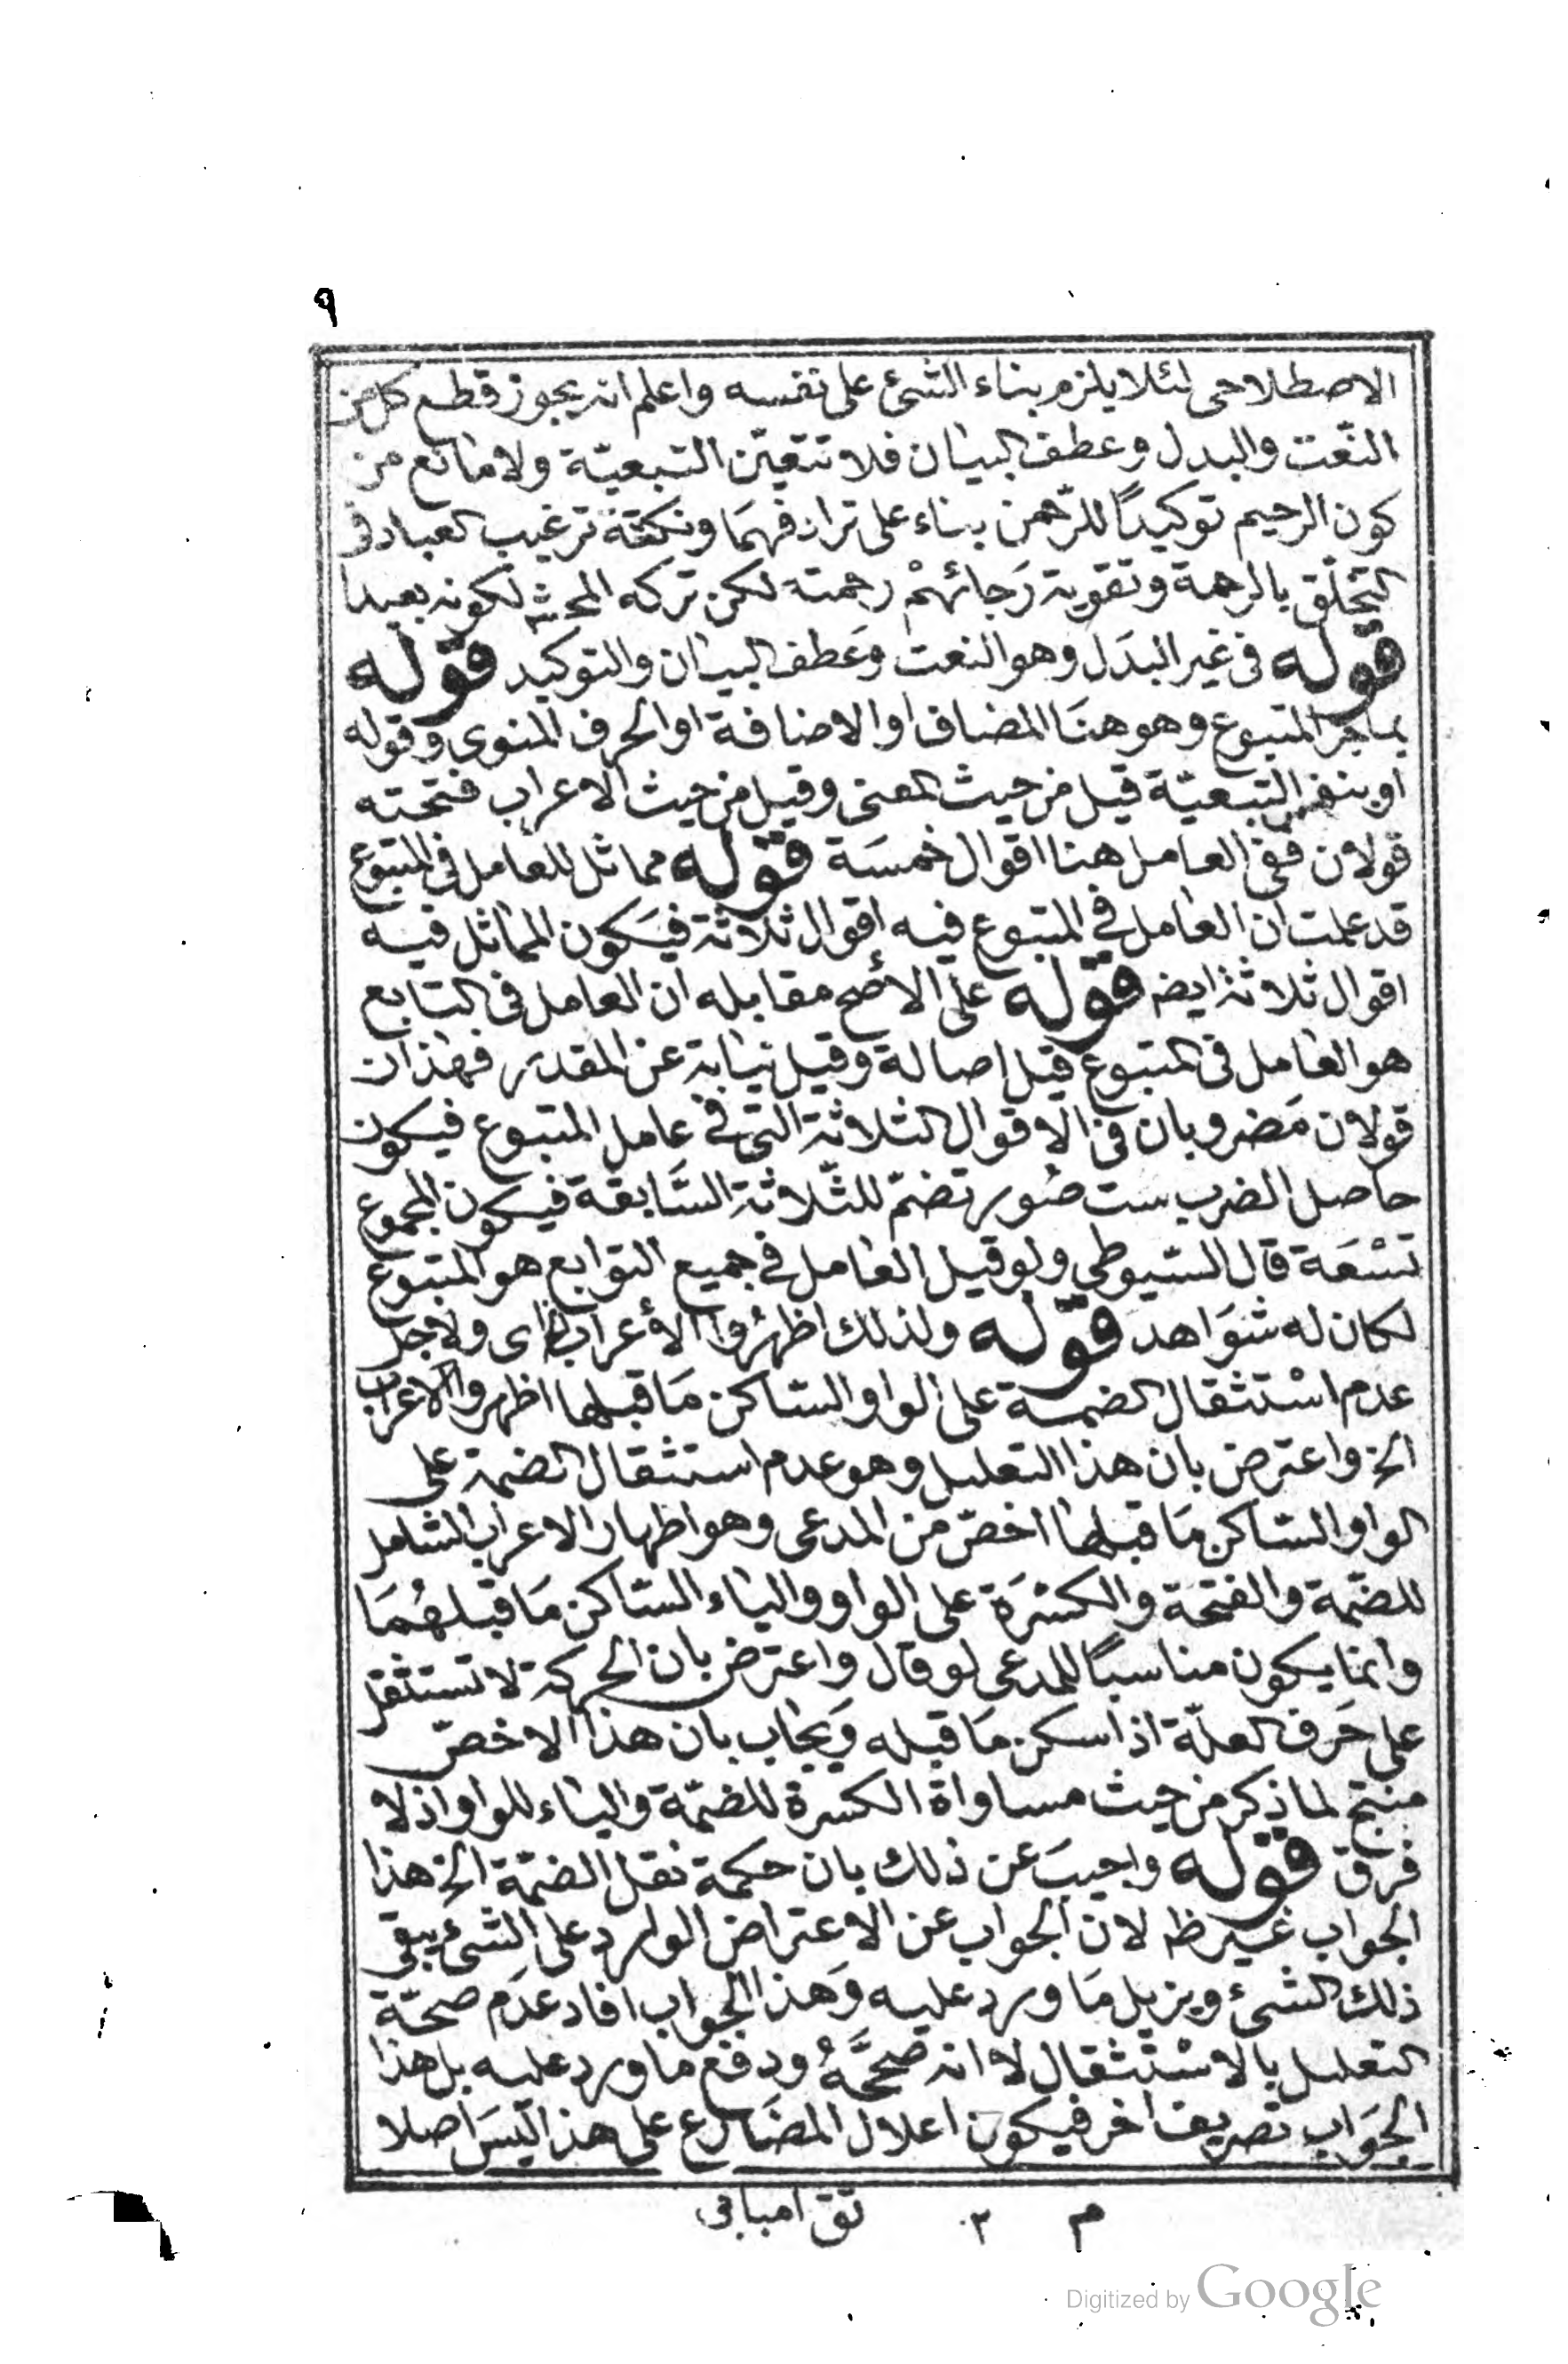 ٩
الاصطلاحى لئلا يلزم بناء الشئ على نفسه واعلم انه يجوز قطع كل من
النّعت والبدل وعطف البيان فلا تتعيّن التبعيّة ولا مانع من
كون الرحيم توكيدًا للرّحمن بناء على ترادفهمَا ونكتة ترغيب العباد فى
التخلّق بالرحمة وتقوية رَجائهمْ رحمته لكن تركه المحشى لكونه بعيدا
قوله فى غير البدَل وهو النعت وعَطف البيان والتوكيد قوله
بما جر المتبوع وهو هنَا المضاف او الاضافة او الحرف المنوى وقوله
او بنفس التبعيّة قيل من حيث المعنى وقيل من حيث الاعراب فتحته
قولان ففى العامل هنا اقوال خمسَة قوله مماثل للعامل فى المتبوع
قد علمت ان العامل فى المتبوع فيه اقوال ثلاثة فيَكون المماثل فيه
اقوال ثلاثة ايضا قوله على الأصح مقابله ان العامل فى التابع
هو العامل فى المتبوع قيل اصالة وقيل نيابة عن المقدر فهذان
قولان مَضروبان فى الاقوال الثلاثة التى فى عامل المتبوع فيكون
حاصل الضرب ست صُور تضمّ للثّلاثة السَّابقة فيكون المجموع
تسْعَة قال السّيوطي ولو قيل العامل فى جميع التوابع هو المتبوع
لكان له شوَاهد قوله ولذلك اظهرُوا الأعراب اى ولاجل
عدم اسْتثقال الضمة على الواو السّاكن مَا قبلها اظهروا الاعراب
الخ واعترض بان هذا التعليل وهو عدم استثقال الضمة على
الواو السّاكن مَا قبلها اخصّ من المدعى وهو اظهار الاعراب الشامل
للضّمة والفتحَة والكسْرَة على الواو والياء السّاكن مَا قبلهُمَا
وانما يكون مناسبًا للمدعى لو قال واعترض بان الحركة لا تستثقل
على حَرف العلّة اذا سكن مَا قبله وَيجاب بان هذا الاخصّ
منتج لما ذكر من حيث مساواة الكسرة للضمّة والياء للواو اذ لا
فرق قوله واجيبَ عن ذلك بان حكمة نقل الضمّة الخ هذا
الجواب غير ظ لان الجواب عن الاعتراض الوارد على الشئ يبقى
ذلك الشئ ويزيل مَا ورد عليه وَهذا الجواب افاد عدَم صحّة
التعليل بالاسْتثقال لا انه صَحّحَهُ ودفع ما ورد عليه بل هذا
الجوَاب تصريف اخر فيكون اعلال المضَارع على هذا ليسَ اصلا
م ٢ تق امبابى
Digitized by Google